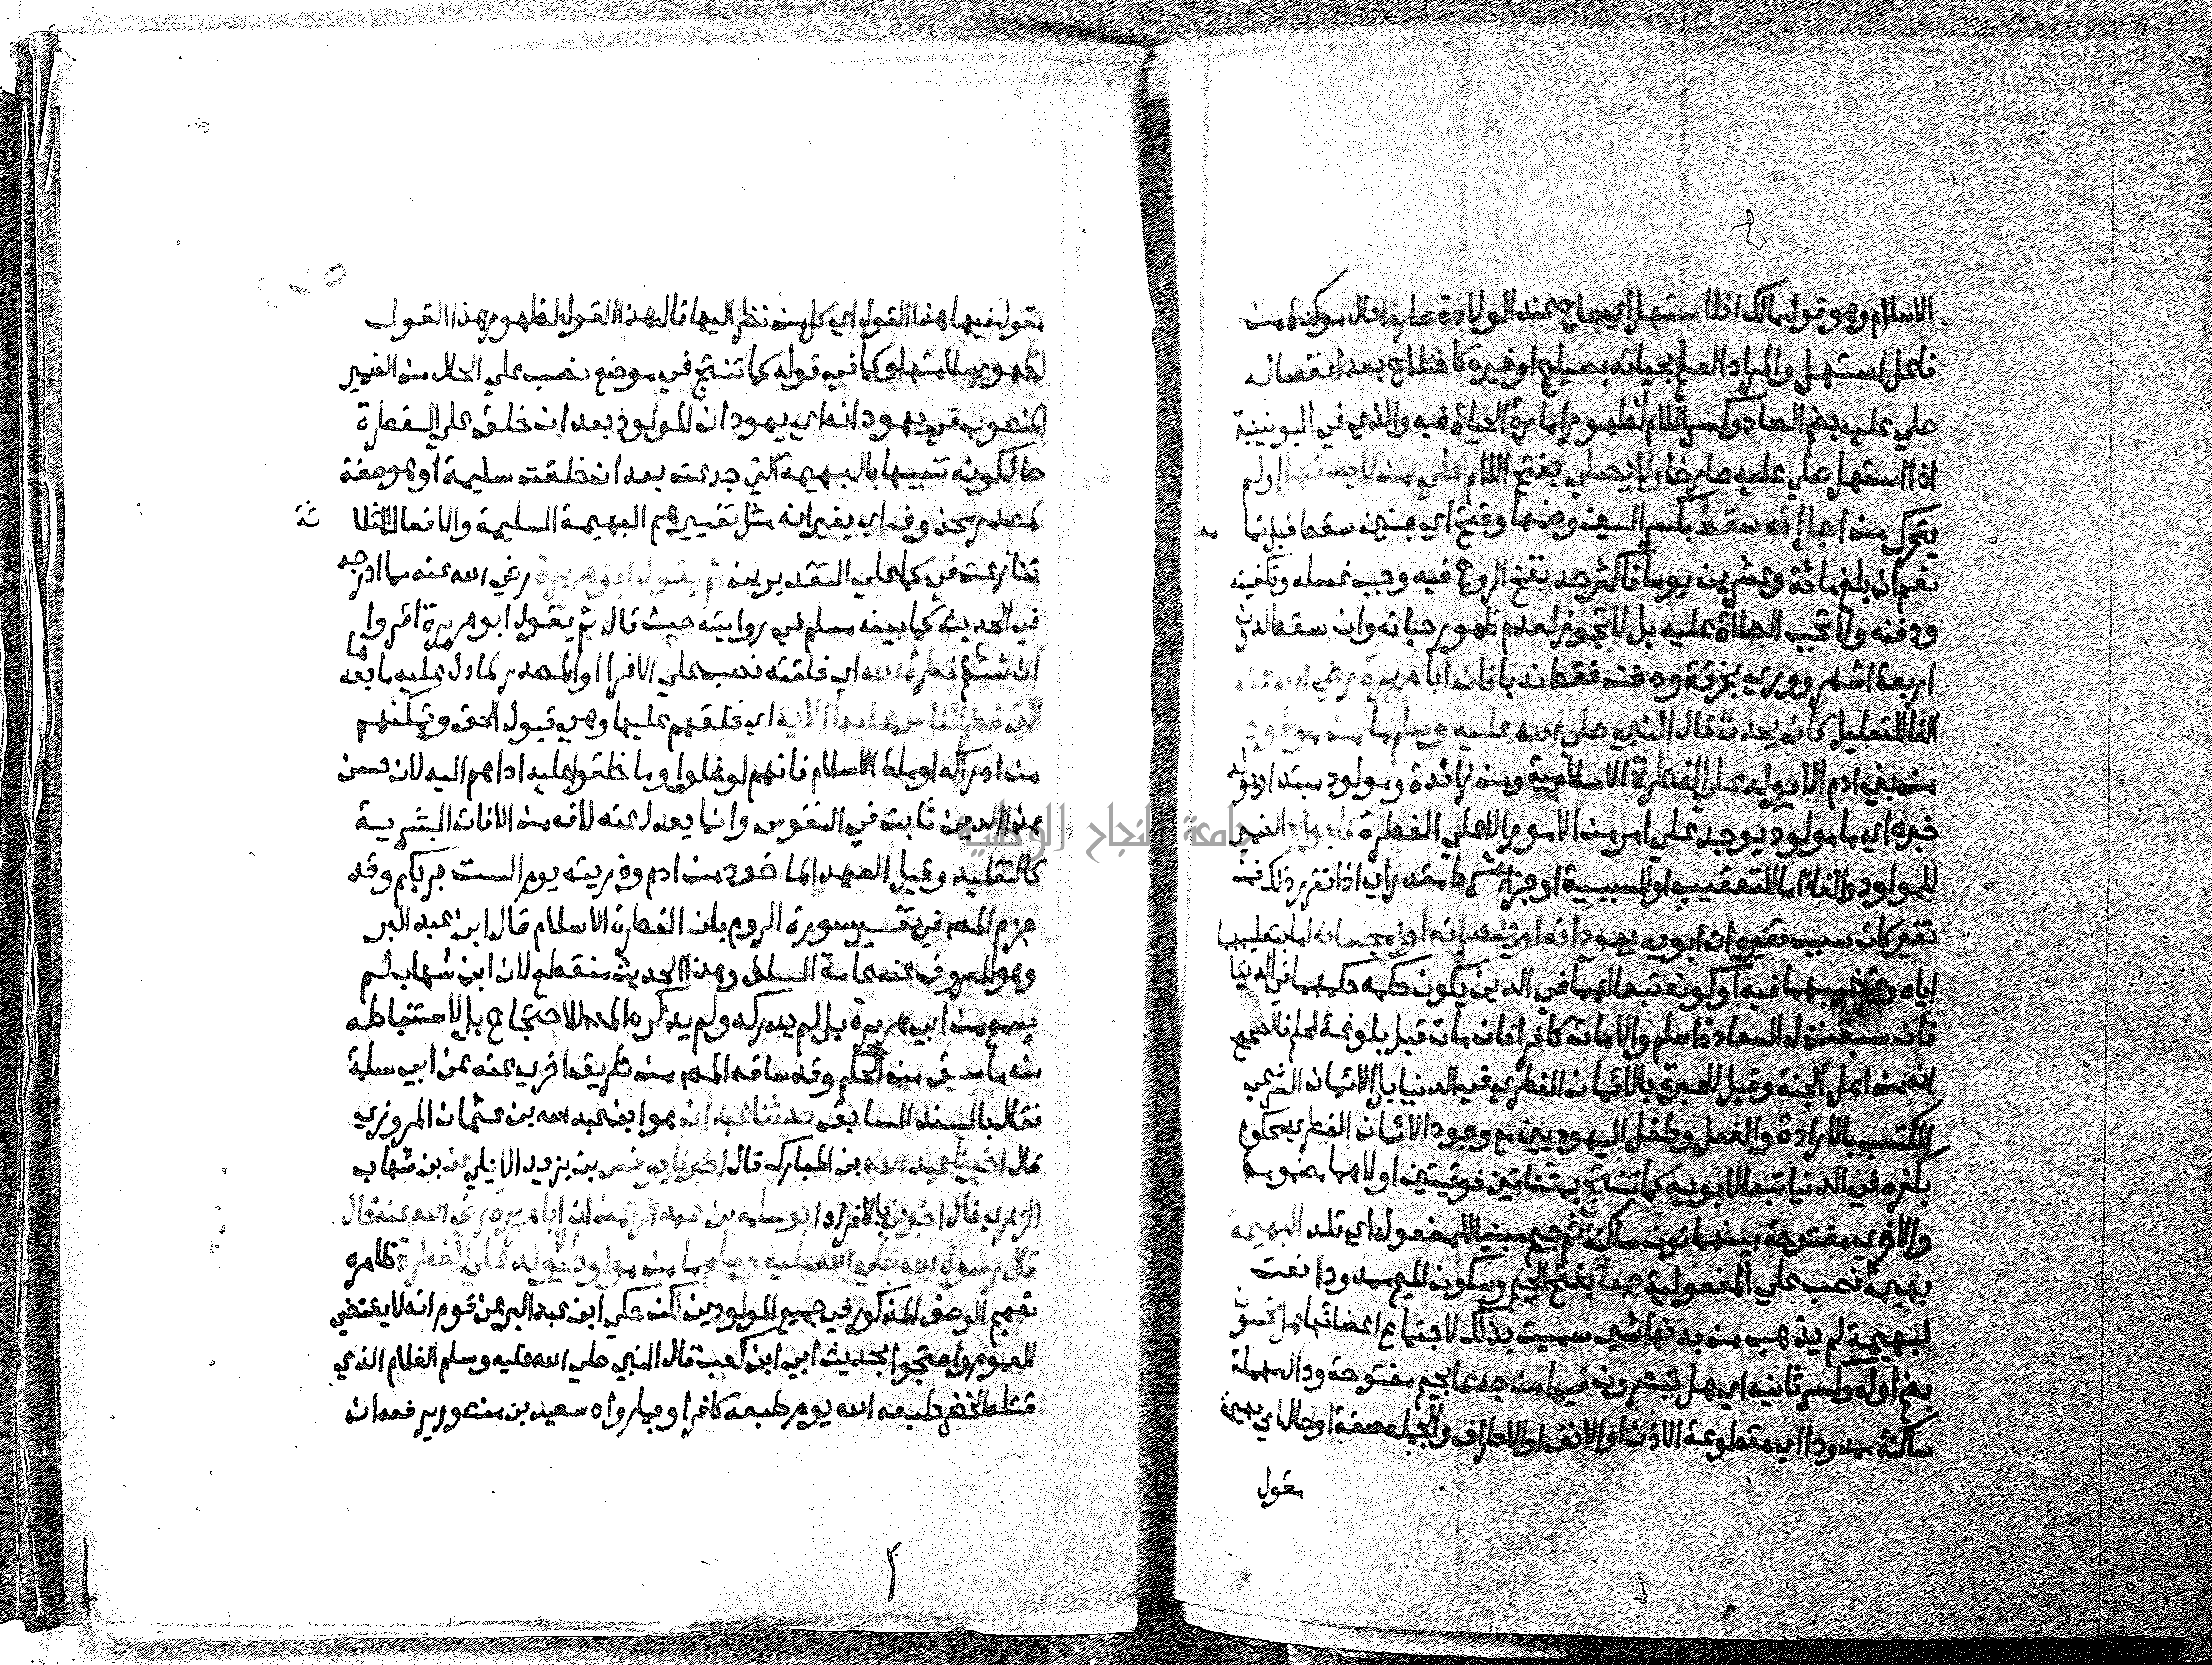 الاسلام وهو قول مالك اذا استهل اي صاح عند الولادة صارخا حال موكدة من
فاعل استهل والمراد العلم بحياته بصياح او غيره كاختلاج بعد انفصاله
صلي عليه بضم الصاد وكسر اللام لظهور امارة الحياة فيه والذي في اليونينية
اذا استهل صلي عليه صارخا ولا يصلي بفتح اللام علي من لا يستهل اولم
يتحرك من اجل انه سقط بكسر السين وضمها وفتح اي جنين سقط قبل تما مه
نعم ان بلغ مائة وعشرين يوما فاكثر حد نفخ الروح فيه وجب غسله وتكفينه
ودفنه ولا تجب الصلاة عليه بل لا تجوز لعدم ظهور حياته وان سقط لدون
اربعة اشهر ووري بخرقة ودفن فقط فان ابا هريرة رضي الله عنه
الفا للتعليل كان يحدث قال النبي صلي الله عليه وسلم ما من مولود
من بني ادم الا يولد علي الفطرة الاسلامية ومن زائدة ومولود مبتدا ويولد
خبره اي ما مولود يوجد علي امر من الامور الا علي الفطرة فابواه الضمير
للمولود والفا اما للتعقيب او للسببية او جزا شرط مقدر اي اذا تقرر ذلك فمن
تغير كان سبب تغيره ان ابويه يهودانه او ينصرانه او يمجسانه اما بتعليمهما
اياه وترغيبهما فيه او كونه تبعا لهما في الدين يكون حكمه حكمهما في الدنيا
فان سبقت له السعادة اسلم والا مات كافرا فان مات قبل بلوغه الحلم فالصحيح
انه من اهل الجنة وقيل لا عبرة بالايمان الفطري في الدنيا بل الايمان الشرعي
المكتسب بالارادة والفعل وطفل اليهوديين مع وجود الايمان الفطري محكوم
بكفره في الدنيا تبعا لابويه كما تنتج بمثناتين فوقيتين اولاهما مضمومة
والاخري مفتوحة بينهما نون ساكنة ثم جيم مبنيا للمفعول اي تلد البهيمة
بهيمة نصب علي المفعولية جمعا بفتح الجيم وسكون الميم ممدودا نعت
لبهيمة لم يذهب من بدنها شي سميت بذلك لاجتماع اعضائها هل تحسون
بضم اوله وكسر ثانيه اي هل تبصرون فيها من جدعا بجيم مفتوحة ودال مهملة
ساكنة ممدودا اي مقطوعة الاذن او الانف او الاطراف والجملة صفة او حال اي بهيمة
مقول
مقول فيها هذا القول اي كل من نظر اليها قال هذا القول لظهور هذا القول
لظهور سلامتها وكما في قوله كما تنتج في موضع نصب علي الحال من الضمير
المنصوب في يهودانه اي يهودان المولود بعد ان خلق علي الفطرة
حال كونه شبيها بالبهيمة التي جدعت بعد ان خلقت سليمة او هو صفة
لمصدر محذوف اي يغيرانه مثل تغييرهم البهيمة السليمة والافعال الثلا ثة
تنازعت في كما علي التقديرين ثم يقول ابو هريرة رضي الله عنه مما ادرجه
في الحديث كما بينه مسلم في روايته حيث قال ثم يقول ابو هريرة اقروا
ان شئتم فطرة الله اي خلقته نصب علي الاغرا او المصدر لما دل عليه ما بعدها
التي فطر الناس عليها الاية اي خلقهم عليها وهي قبول الحق وتمكنهم
من ادراكه او ملة الاسلام فانهم لو خلوا وما خلقوا عليه اداهم اليه لان حسن
هذا الدين ثابت في النفوس وانما يعدل عنه لافة من الافات البشرية
كالتقليد وقيل العهد الماخوذ من ادم وذريته يوم الست بربكم وقد
جزم المص في تفسير سورة الروم بان الفطرة الاسلام قال ابن عبد البر
وهو المعروف عند عامة السلف وهذا الحديث منقطع لان ابن شهاب لم
يسمع من ابي هريرة بل لم يدركه ولم يذكره المص للاحتجاج بل لاستنباطه
منه ما سبق من الحكم وقد ساقه المص من طريق اخري عنه عن ابي سلمة
فقال بالسند السابق حدثنا عبدان هو ابن عبد الله بن عثمان المروزي
قال اخبرنا عبد الله بن المبارك قال اخبرنا يونس بن يزيد الايلي عن بن شهاب
الزهري قال اخبرني بالافراد ابو سلمه بن عبد الرحمن ان ابا هريرة رضي الله عنه قال
قال رسول الله صلي الله عليه وسلم ما من مولود الا يولد علي الفطرة ظاهره
تعميم الوصف المذكور في جميع المولودين لكن حكي ابن عبد البر عن قوم انه لا يقتضي
العموم واحتجوا بحديث ابي ابن كعب قال النبي صلي الله عليه وسلم الغلام الذي
قتله الخضر طبعه الله يوم طبعه كافرا وبما رواه سعيد بن منصور يرفعه ان
جامعة النجاح الوطنية